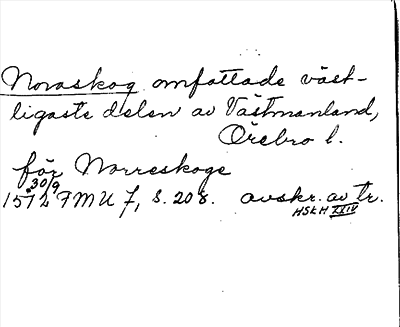 Noraskog omfattade väst-
ligaste delen av Västmanland,
Örebro l.
för Norreskoge
30/9
1512 FMU 7, s. 208. avskr. av tr.
HSkH XXIV